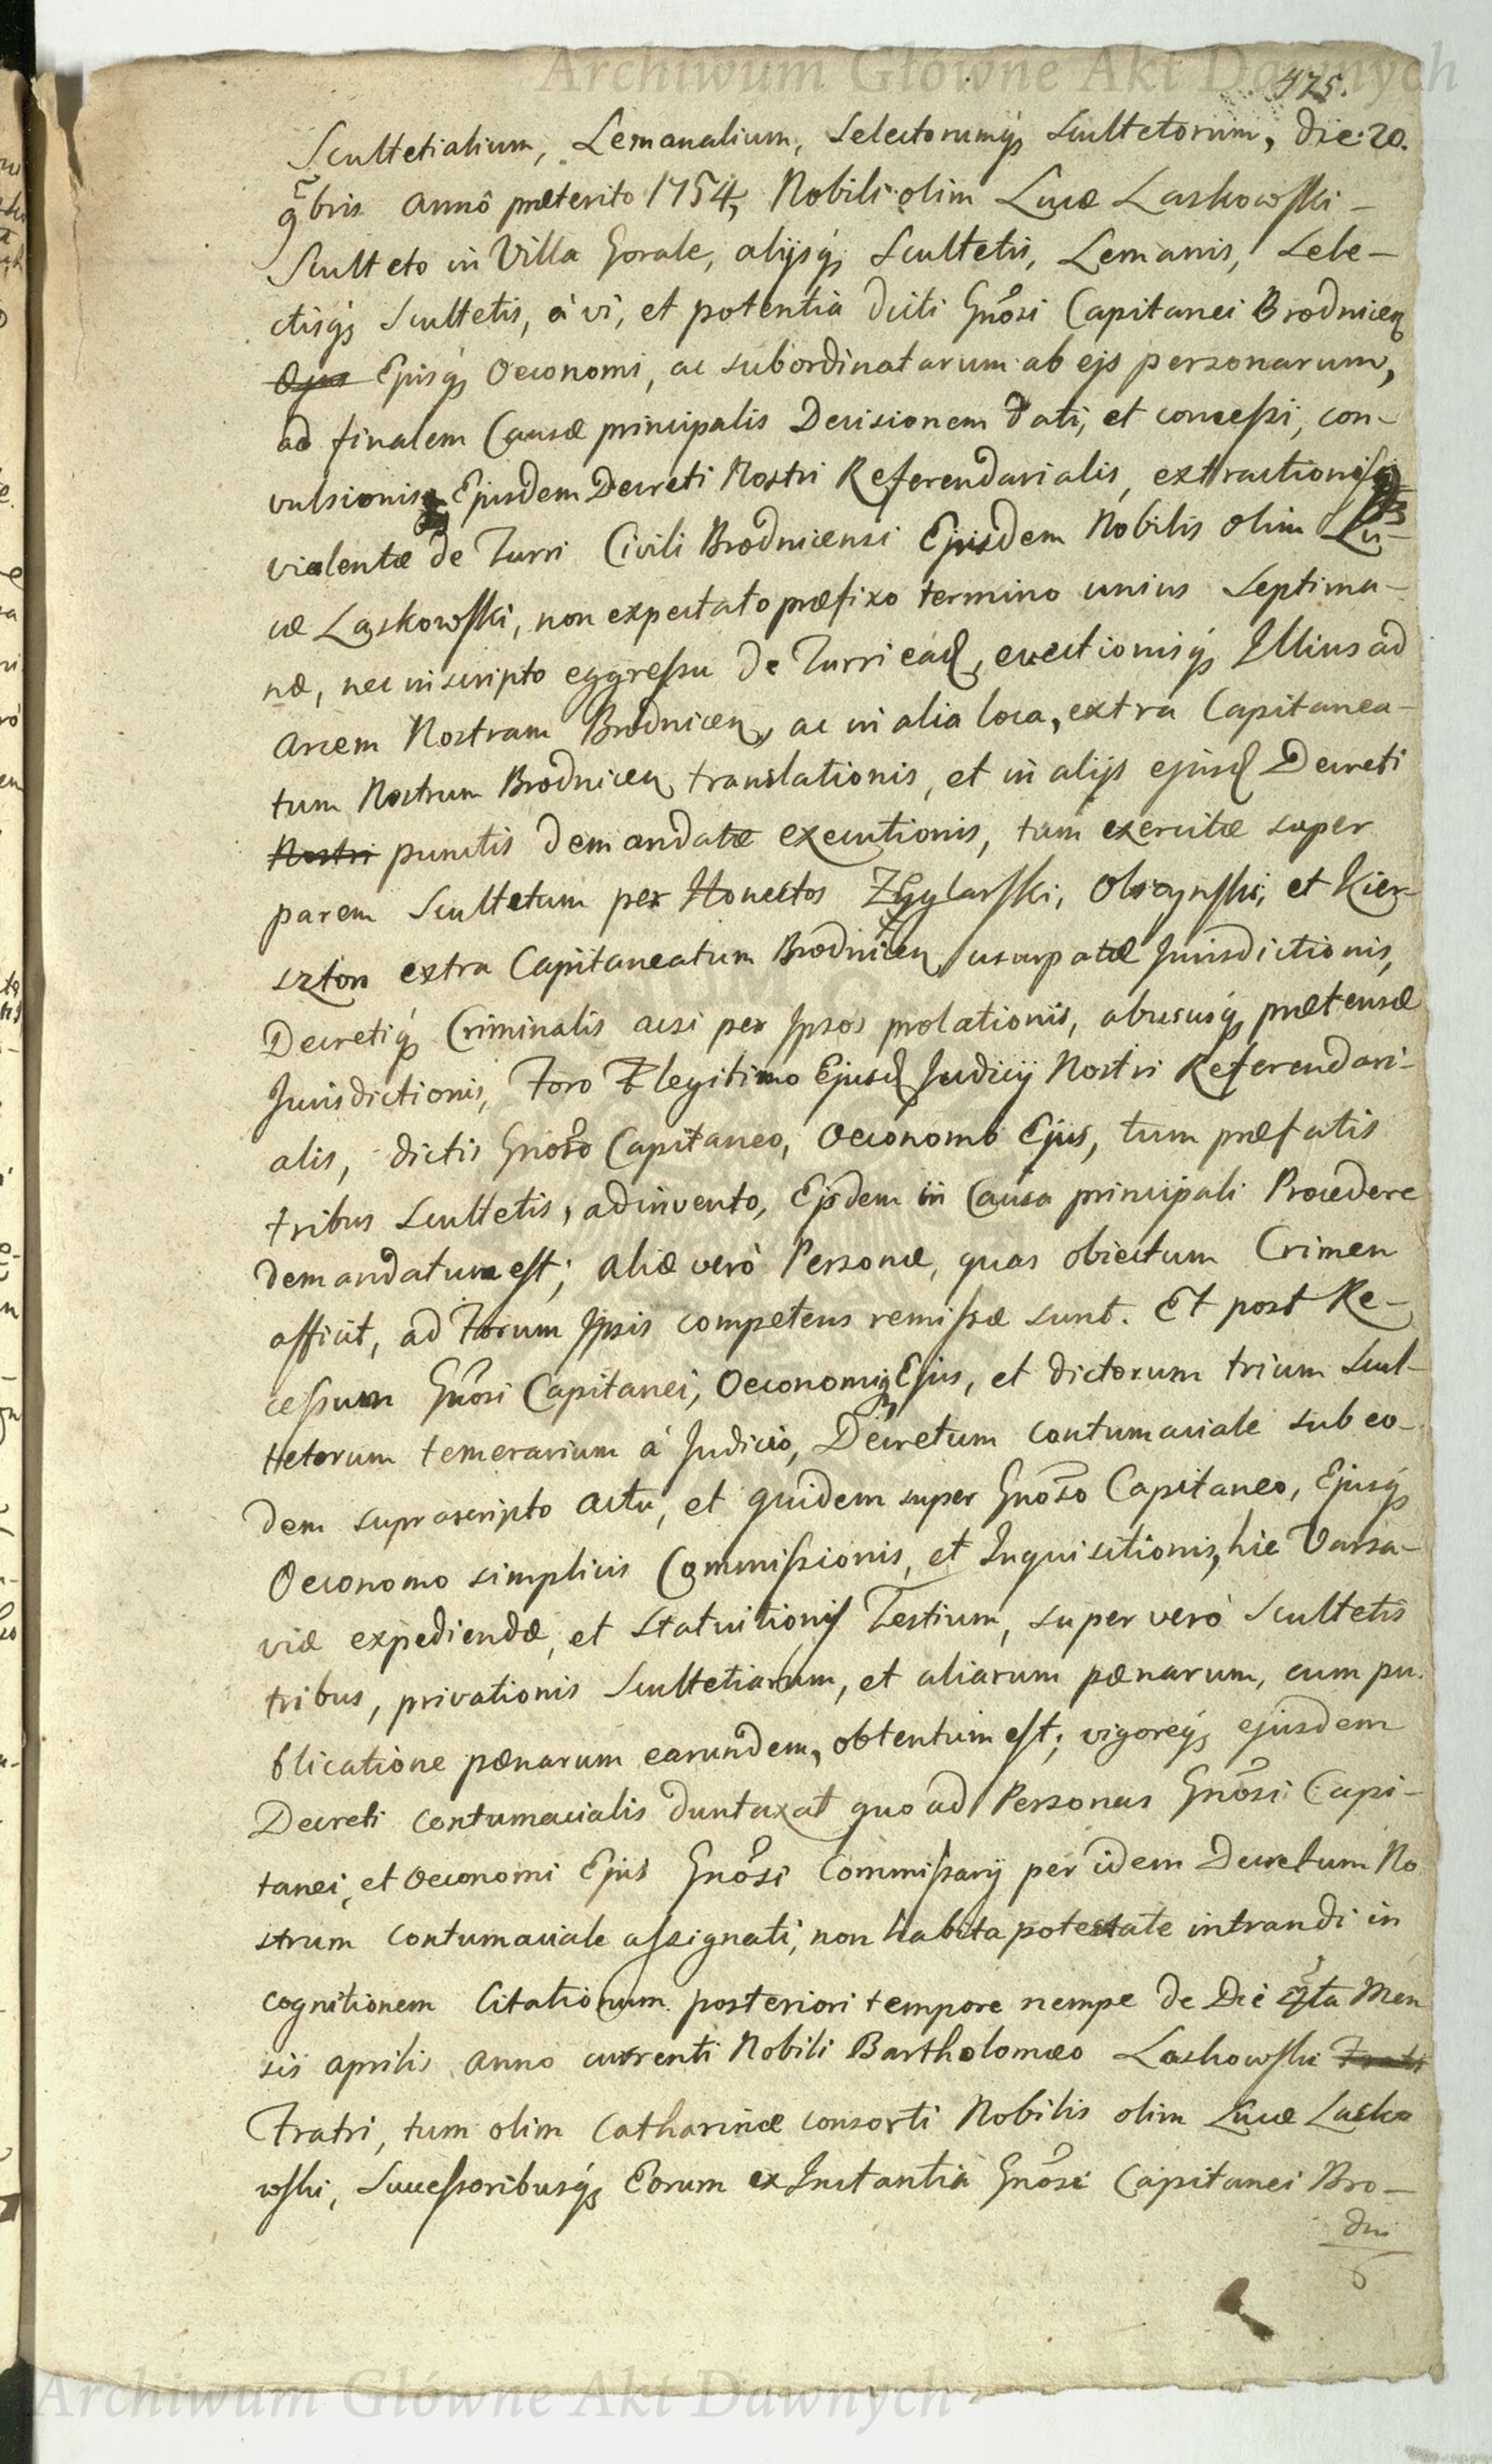 Archiwum Główne Akt Dawnych
475.
Scultetialium, Lemanalium, Selectorumq; Scultetorum, die: 20.
9bris Annô præterito 1754, Nobili olim Lucæ Laskowski –
Sculteto in Villa Gorale, alijsq; Scultetis, Lemanis, Sele–
ctisq; Scultetis, à vi, et potentia dicti Gnosi Capitanei Brodnicen
Ejus Ejusq; Oeconomi, ac subordinatarum ab ejs personarum,
ad finalem Causæ principalis Decisionem dati, et concessi, con–
vulsionis Ejusdem Decreti Nostri Referendarialis, extractionisq;
violentæ de Turri Civili Brodnicensi Ejusdem Nobilis olim Lu–
cæ Laskowski, non expectato præfixo termino unius Septima–
næ, nec inscripto eggressu de Turri ead, evectionisq; Illius ad
Arcem Nostram Brodnicen, ac in alia loca, extra Capitanea–
tum Nostrum Brodnicen translationis, et in alijs ejusd Decreti
Nostri punctis demandatæ executionis, tum exercitæ super
parem Scultetum per Honestos Zyglarski, Olszynski, et Kier–
szton extra Capitaneatum Brodnicen usurpatæ Jurisdictionis,
Decretiq; Criminalis acsi per Ipsos prolationis, abususq; prætensæ
Jurisdictionis, Foro Legitimo Ejusd Judicij Nostri Referendari–
alis, dictis Gnoso Capitaneo, Oeconomo Ejus, tum præfatis
tribus Scultetis, adinvento, Ejsdem in Causa principali Procedere
demandatum est; aliæ verò Personæ, quas obiectum Crimen
afficit, ad Forum Ipsis competens remissæ sunt. Et post Re–
cessum Gnosi Capitanei, Oeconomiq; Ejus, et dictorum trium Scul–
tetorum temerarium à Judicio, Decretum contumaciale sub eo–
dem suprascripto actu, et quidem super Gnoso Capitaneo, Ejusq;
Oeconomo simplicis Commissionis, et Inquisitionis, hic Varsa–
viæ expediendæ, et statuitionis Testium, super verò Scultetis
tribus, privationis Scultetiarum, et aliarum pœnarum, cum pu
blicatione pœnarum earundem, obtentum est; vigoreq; ejusdem
Decreti contumacialis duntaxat quo ad Personas Gnosi Capi–
tanei, et Oeconomi Ejus Gnosi Commissarij per idem Decretum No
strum Contumaciale assignati, non habita potestate intrandi in
cognitionem Citationum posteriori tempore nempe de Die Men
sis Aprilis Anno currenti Nobili Bartholomæo Laskowski Fratri
Fratri, tum olim Catharinæ consorti Nobilis olim Lucæ Lasko
wski, Successoribusq; Eorum ex Instantia Gnosi Capitanei Bro–
dni
Archiwum Główne Akt Dawnych